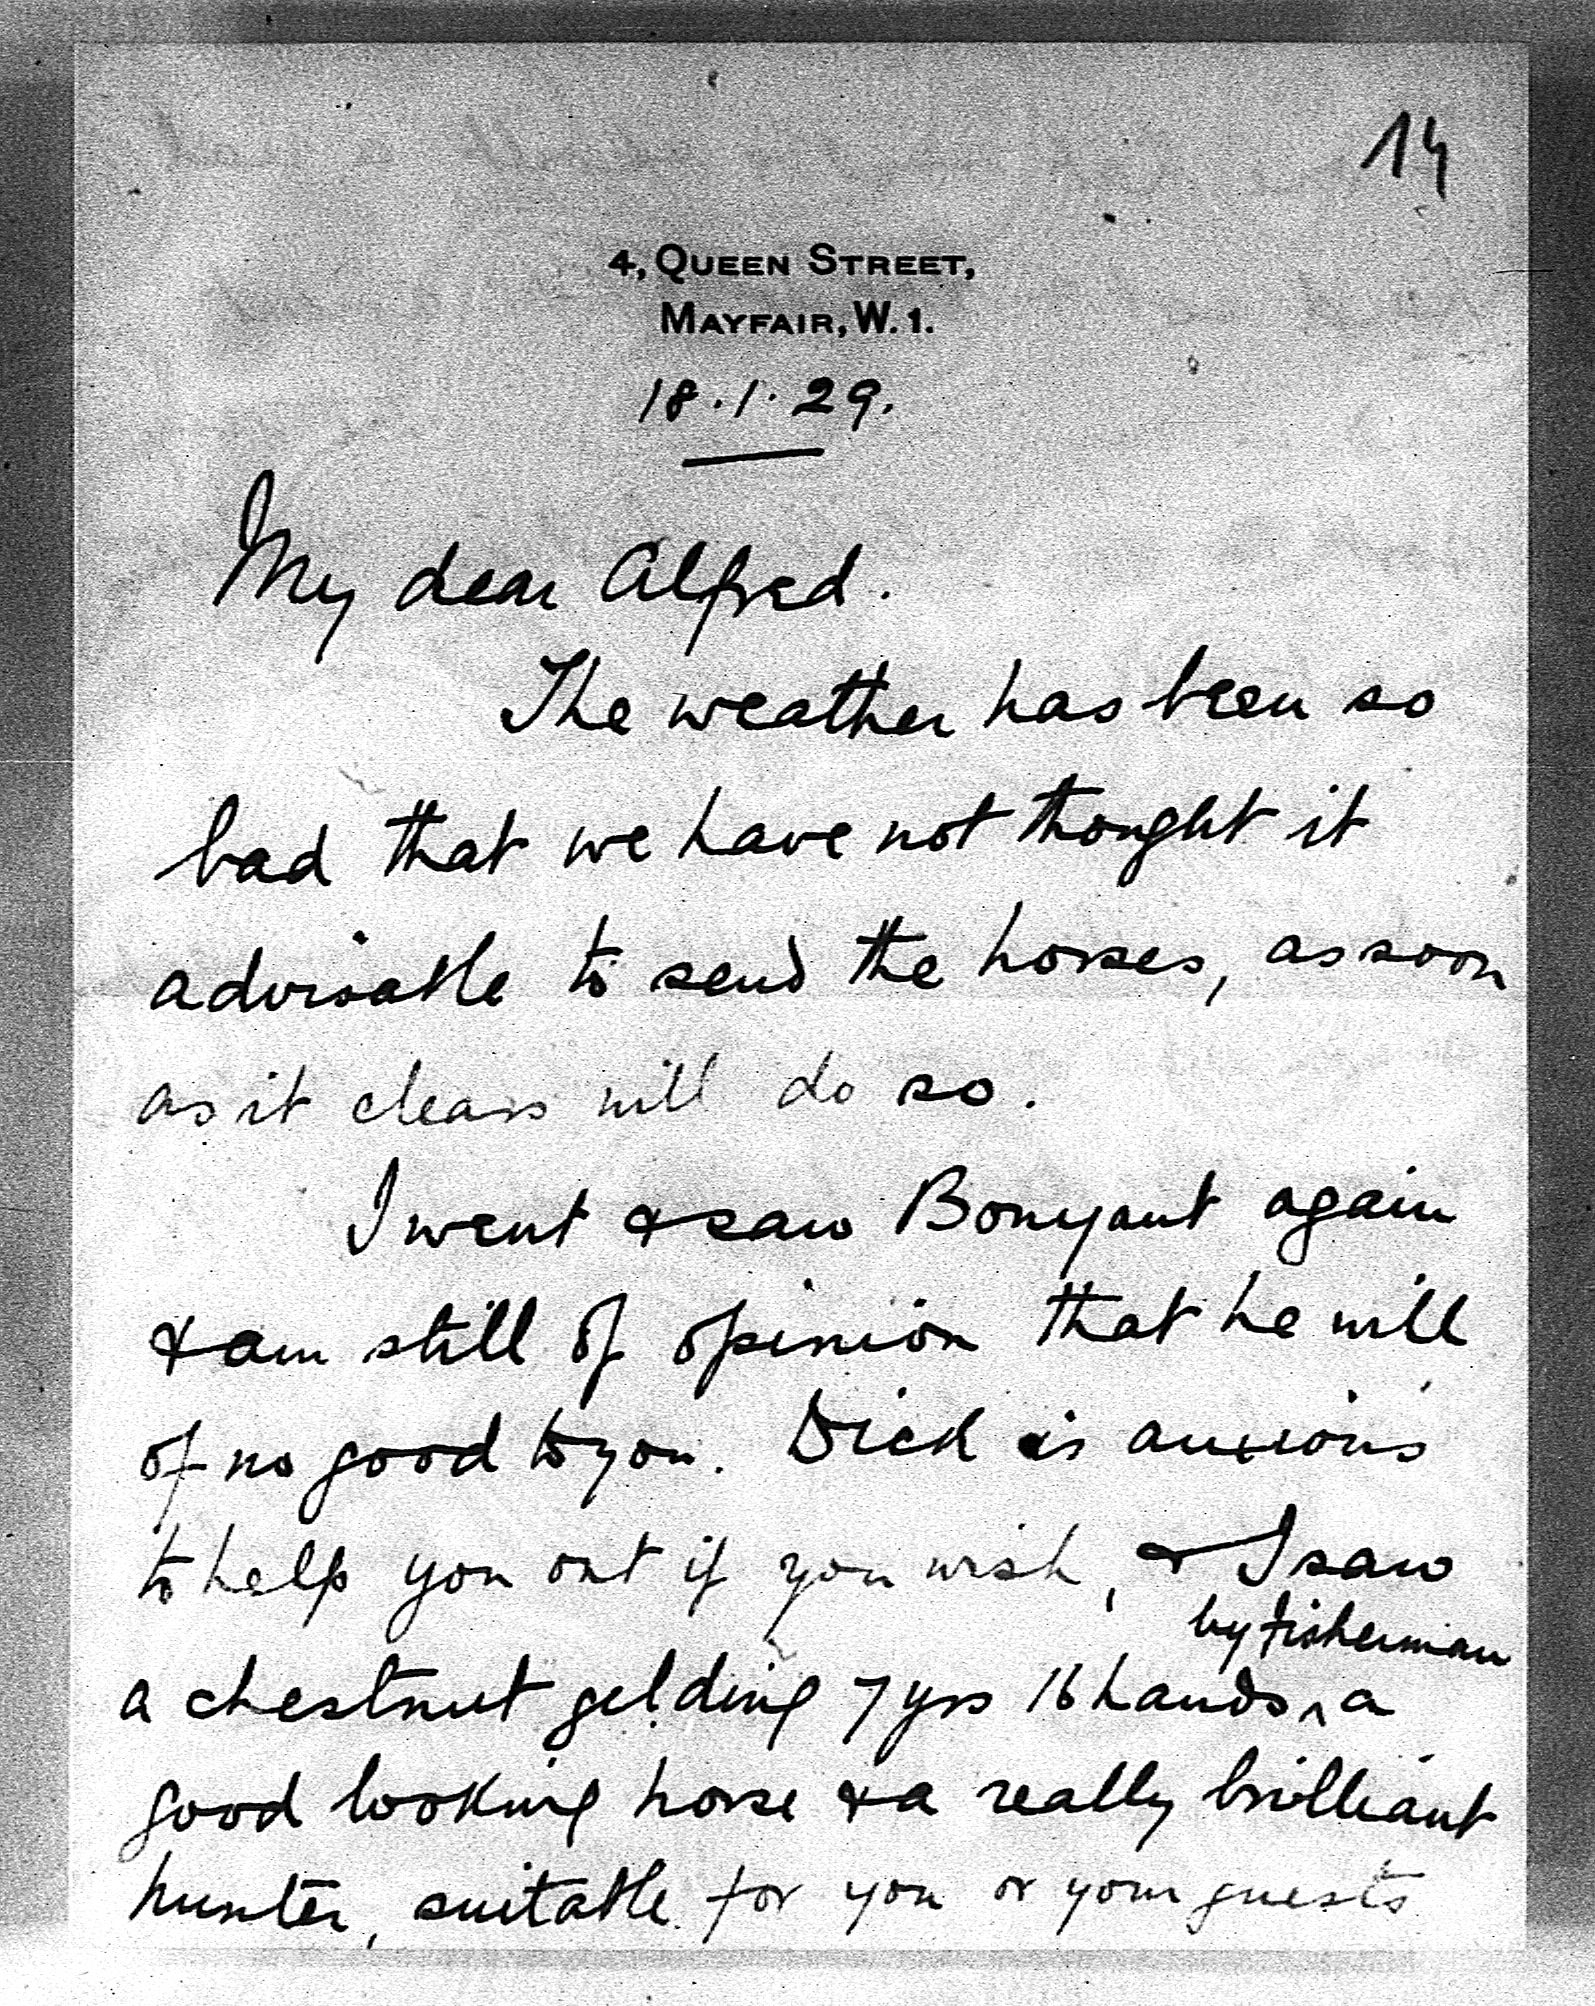 14
4, QUEEN STREET,
MAYFAIR, W. 1.
18.1.29.
My dear Alfred.
The weather has been so
bad that we have not thought it
advisable to send the horses, as soon
as it clears will do so.
I went & saw Bonyant again
& am still of opinion that he will
of no good to you. Dick is anxious
to help you out if you wish, & I saw
by Fisherman
a chestnut gelding 7 yrs 16 hands ^ a
good looking horse & a really brilliant
hunter, suitable for you or your guests